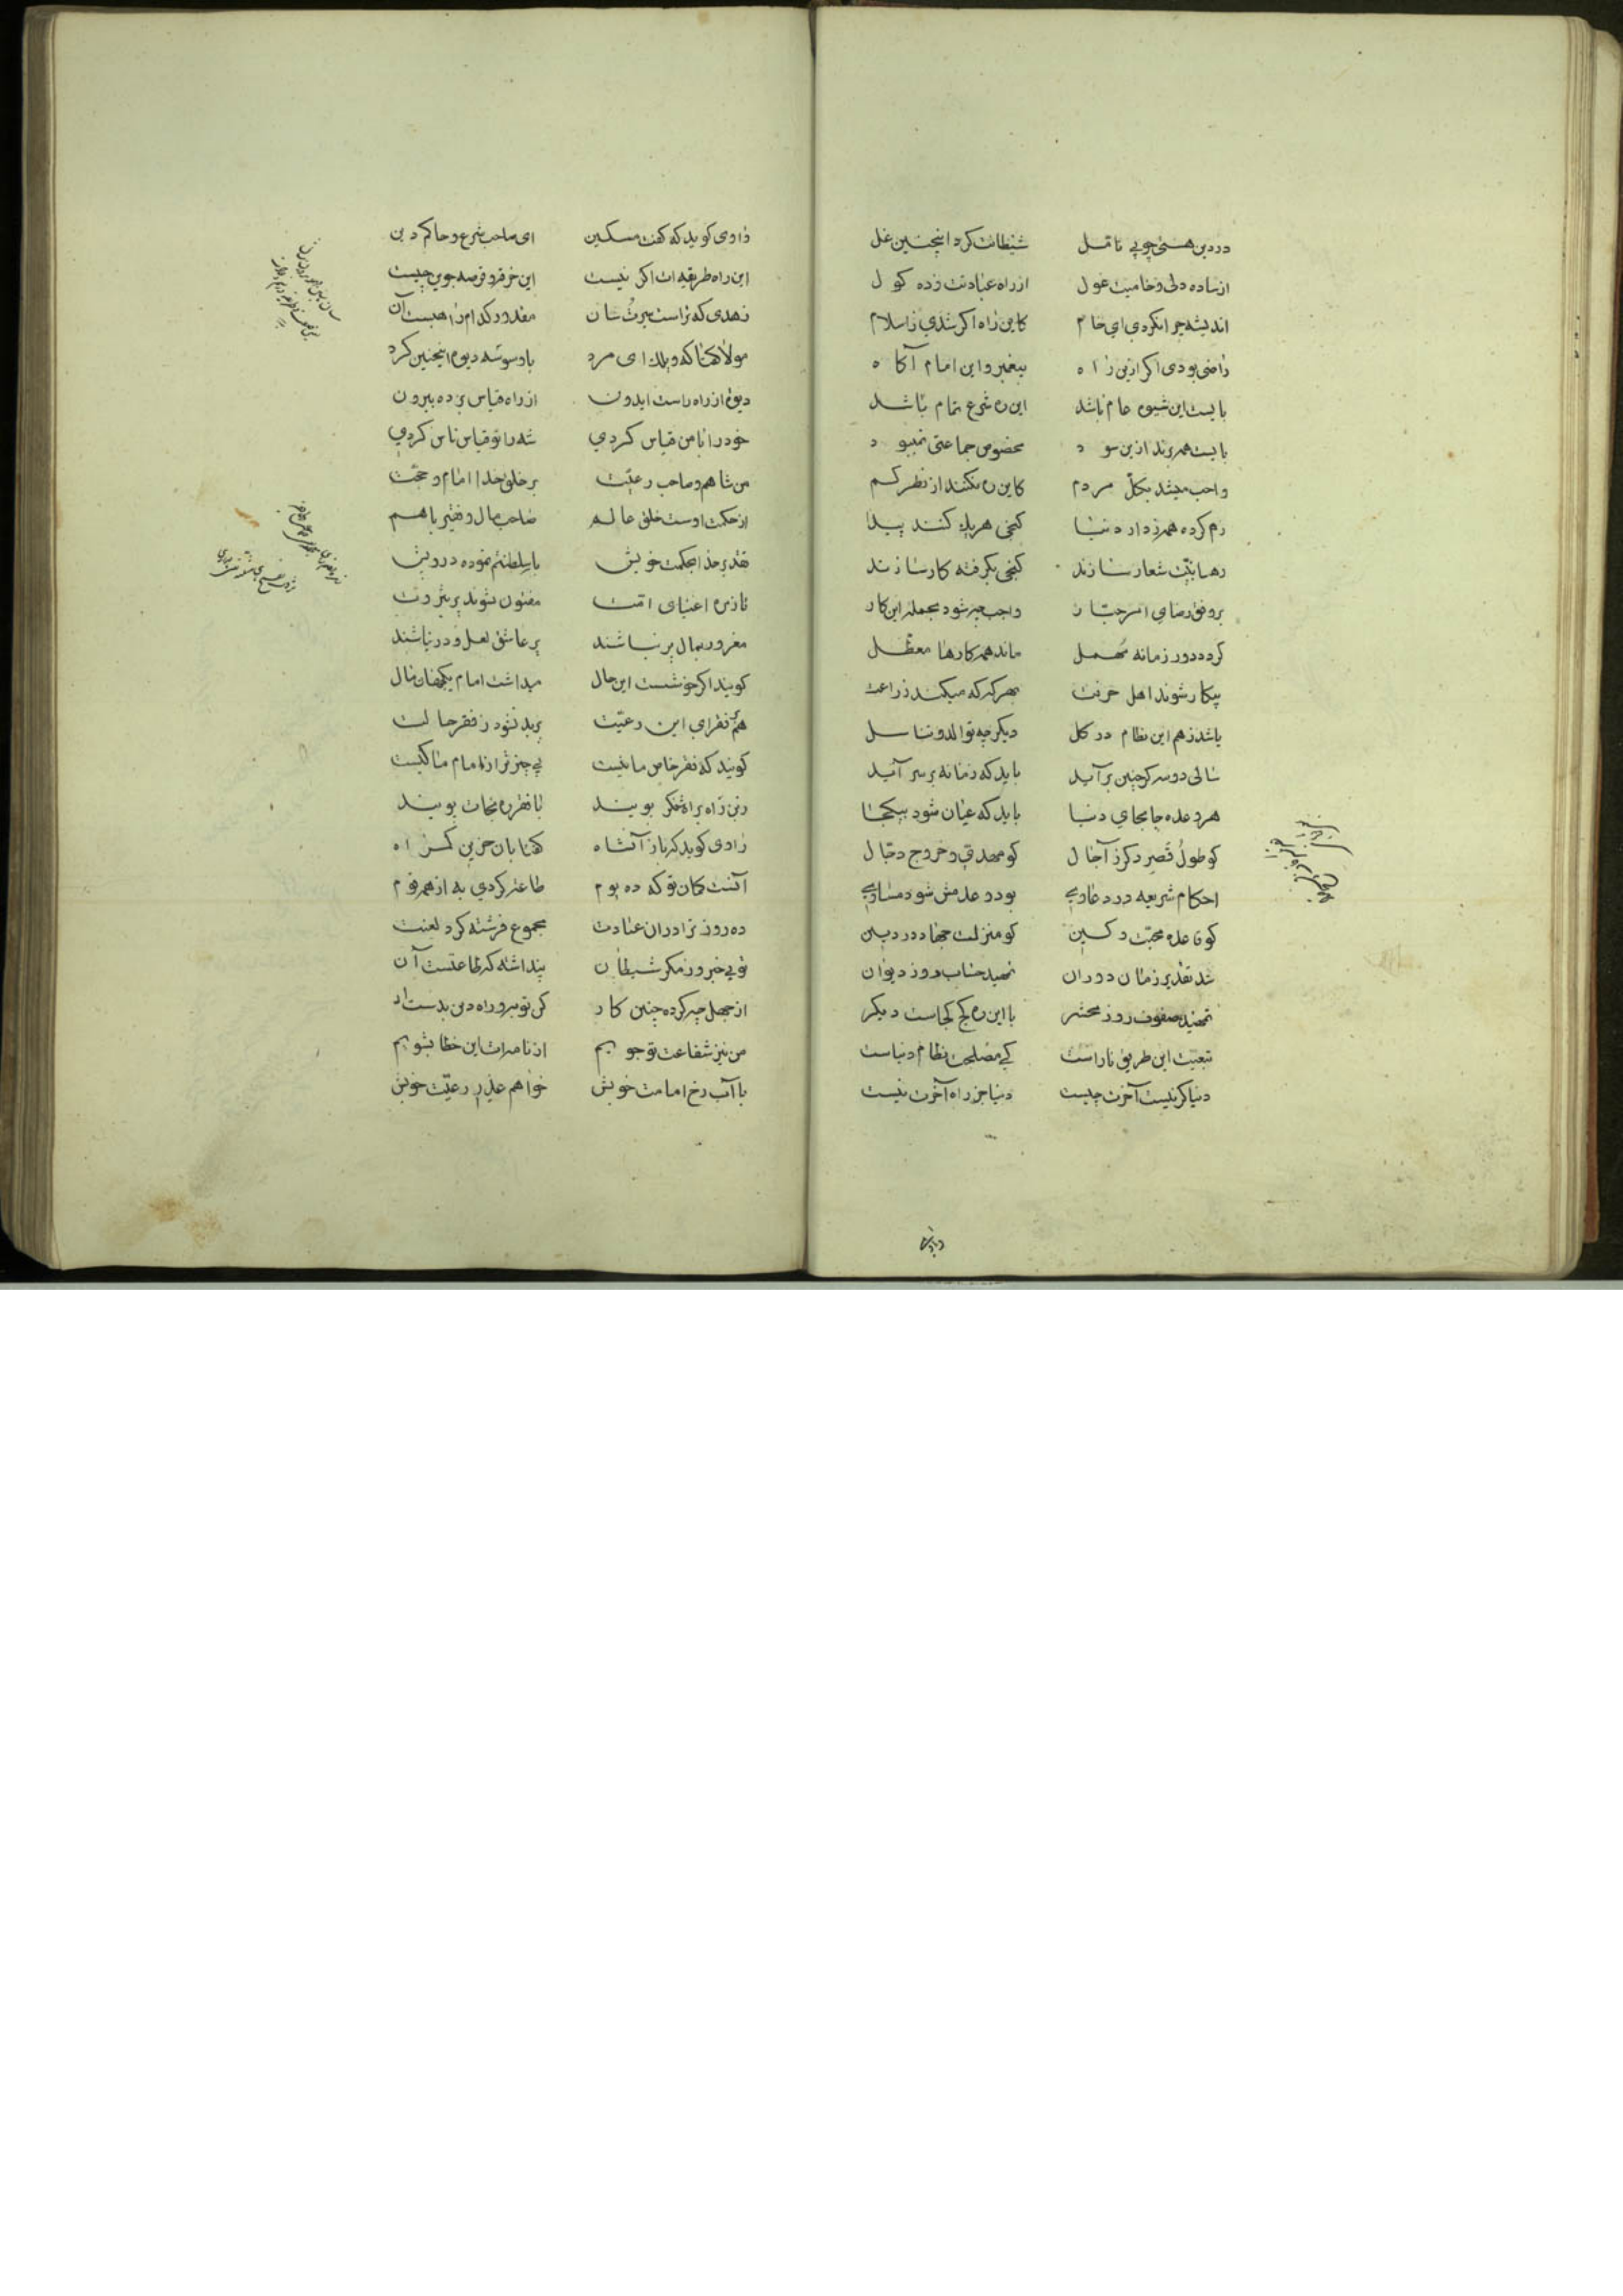 در دین هستی چو بی تامل شیطانت کرد اینچنین غل
از ساده دلی و خامیت غول از راه عبادتت زده کول
اندیشه چرا نکردی ای خام کاین راه اکر شدی ز اسلام
راضی بودی اکر ازین راه پیغمبر و این امام آکاه
بایست این شیوه عام باشد این ره شرع تمام باشد
بایست همه روند ازین سود مخصوص جماعتی نمیبود
واجب میشد بکل مردم کاین ره نکنند از نظر کم
رم کرده همه ز دار دنیا کنجی هر یک کنند پیدا
رهبانیت شعار سازند کنجی بکرفته کار سازند
بر وفق رضای امر جبار واجب چه شود بجمله این کار
کردد دور زمانه مهمل ماند همه کارها معطل
بیکار شوند اهل حرفت بهر که که میکند زراعت
باشد ز هم این نظام در کل دیکر چه توالد و تناسل
سالی دو سه کر چنین برآید باید که زمانه بر سر آید
هر وعده جابجای دنیا باید که عیان شود بیکجا
کو طول قصر دکر ز آجال کو مهدی و خروج دجال
احکام شریعه در دعاوی بود و عدمش شود مساوی
کو قاعده محبت و کین کو منزلت جهاد در دین
شد تقدیر زمان دوران تمهید حساب روز دیوان
تمهید صفوف روز محشر با این ره کج کجاست دیکر
تبعیت این طریق ناراست کی مصلحت نظام دنیاست
دنیا کر نیست آخرت چیست دنیا جز راه آخرت نیست
راوی کوید که کفت مسکین ای صاحب شرع و حاکم دین
این راه طریقه ات اکر نیست این خرقه و قرصه جوین چیست
زهدی که تراست سیرت شان مقدور کدام راهبست آن
مولا کفتا که ویلک ای مرد با وسوسه دیوم اینچنین کرد
دیو از راه راست ایدون از راه قیاس برده بیرون
خود را با من قیاس کردی شه را تو قیاس ناس کردی
من شاهم و صاحب رعیت بر خلق خدا امام و حجت
از حکمت اوست خلق عالم صاحب مال و فقیر با هم
تقدیر خدا بحکمت خویش با سلطنتم نموده درویش
تا زمره اغنیای امت مفتون نشوند بر ثروت
مغرور بمال بر نباشند بر عاشق لعل و در نباشند
کویند اکر خوشست این حال میداشت امام یکجهان مال
هم فقرای این رعیت بر بد نشود ز فقر حالت
کویند که فقر خاص ما نیست بی چیز تر از امام ما کیست
زین راه براه شکر پویند با فقر ره نجات پویند
راوی کوید که باز آنشاه کفتا بان حزین کمراه
آنست کمان تو که ده یوم طاعت کردی به از همه قوم
ده روز ترا در آن عبادت مجموع فرشته کرد لعنت
تو بی خبر و ز مکر شیطان پنداشته که طاعتست آن
از جهل چه کرده چنین کار کن توبه و راه دین بدست آر
من نیز شفاعت تو جویم از نامه ات این خطا بشویم
با آب رخ امامت خویش خواهم عذر رعیت خویش